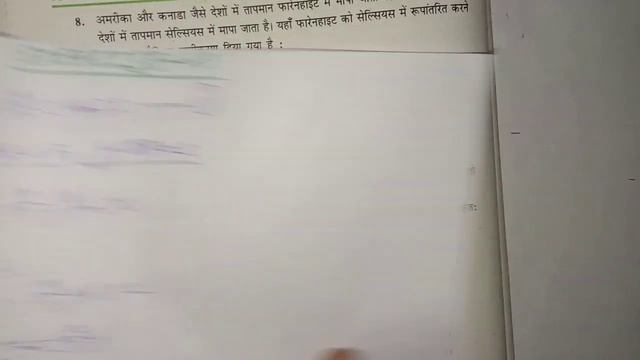 8. अमरीका और कनाडा जैसे देशों में तापमान फारेनहाइट में मापा
देशों में तापमान सेल्सियस में मापा जाता है। यहाँ फारेनहाइट को सेल्सियस में रूपांतरित करने
दिया गया है :